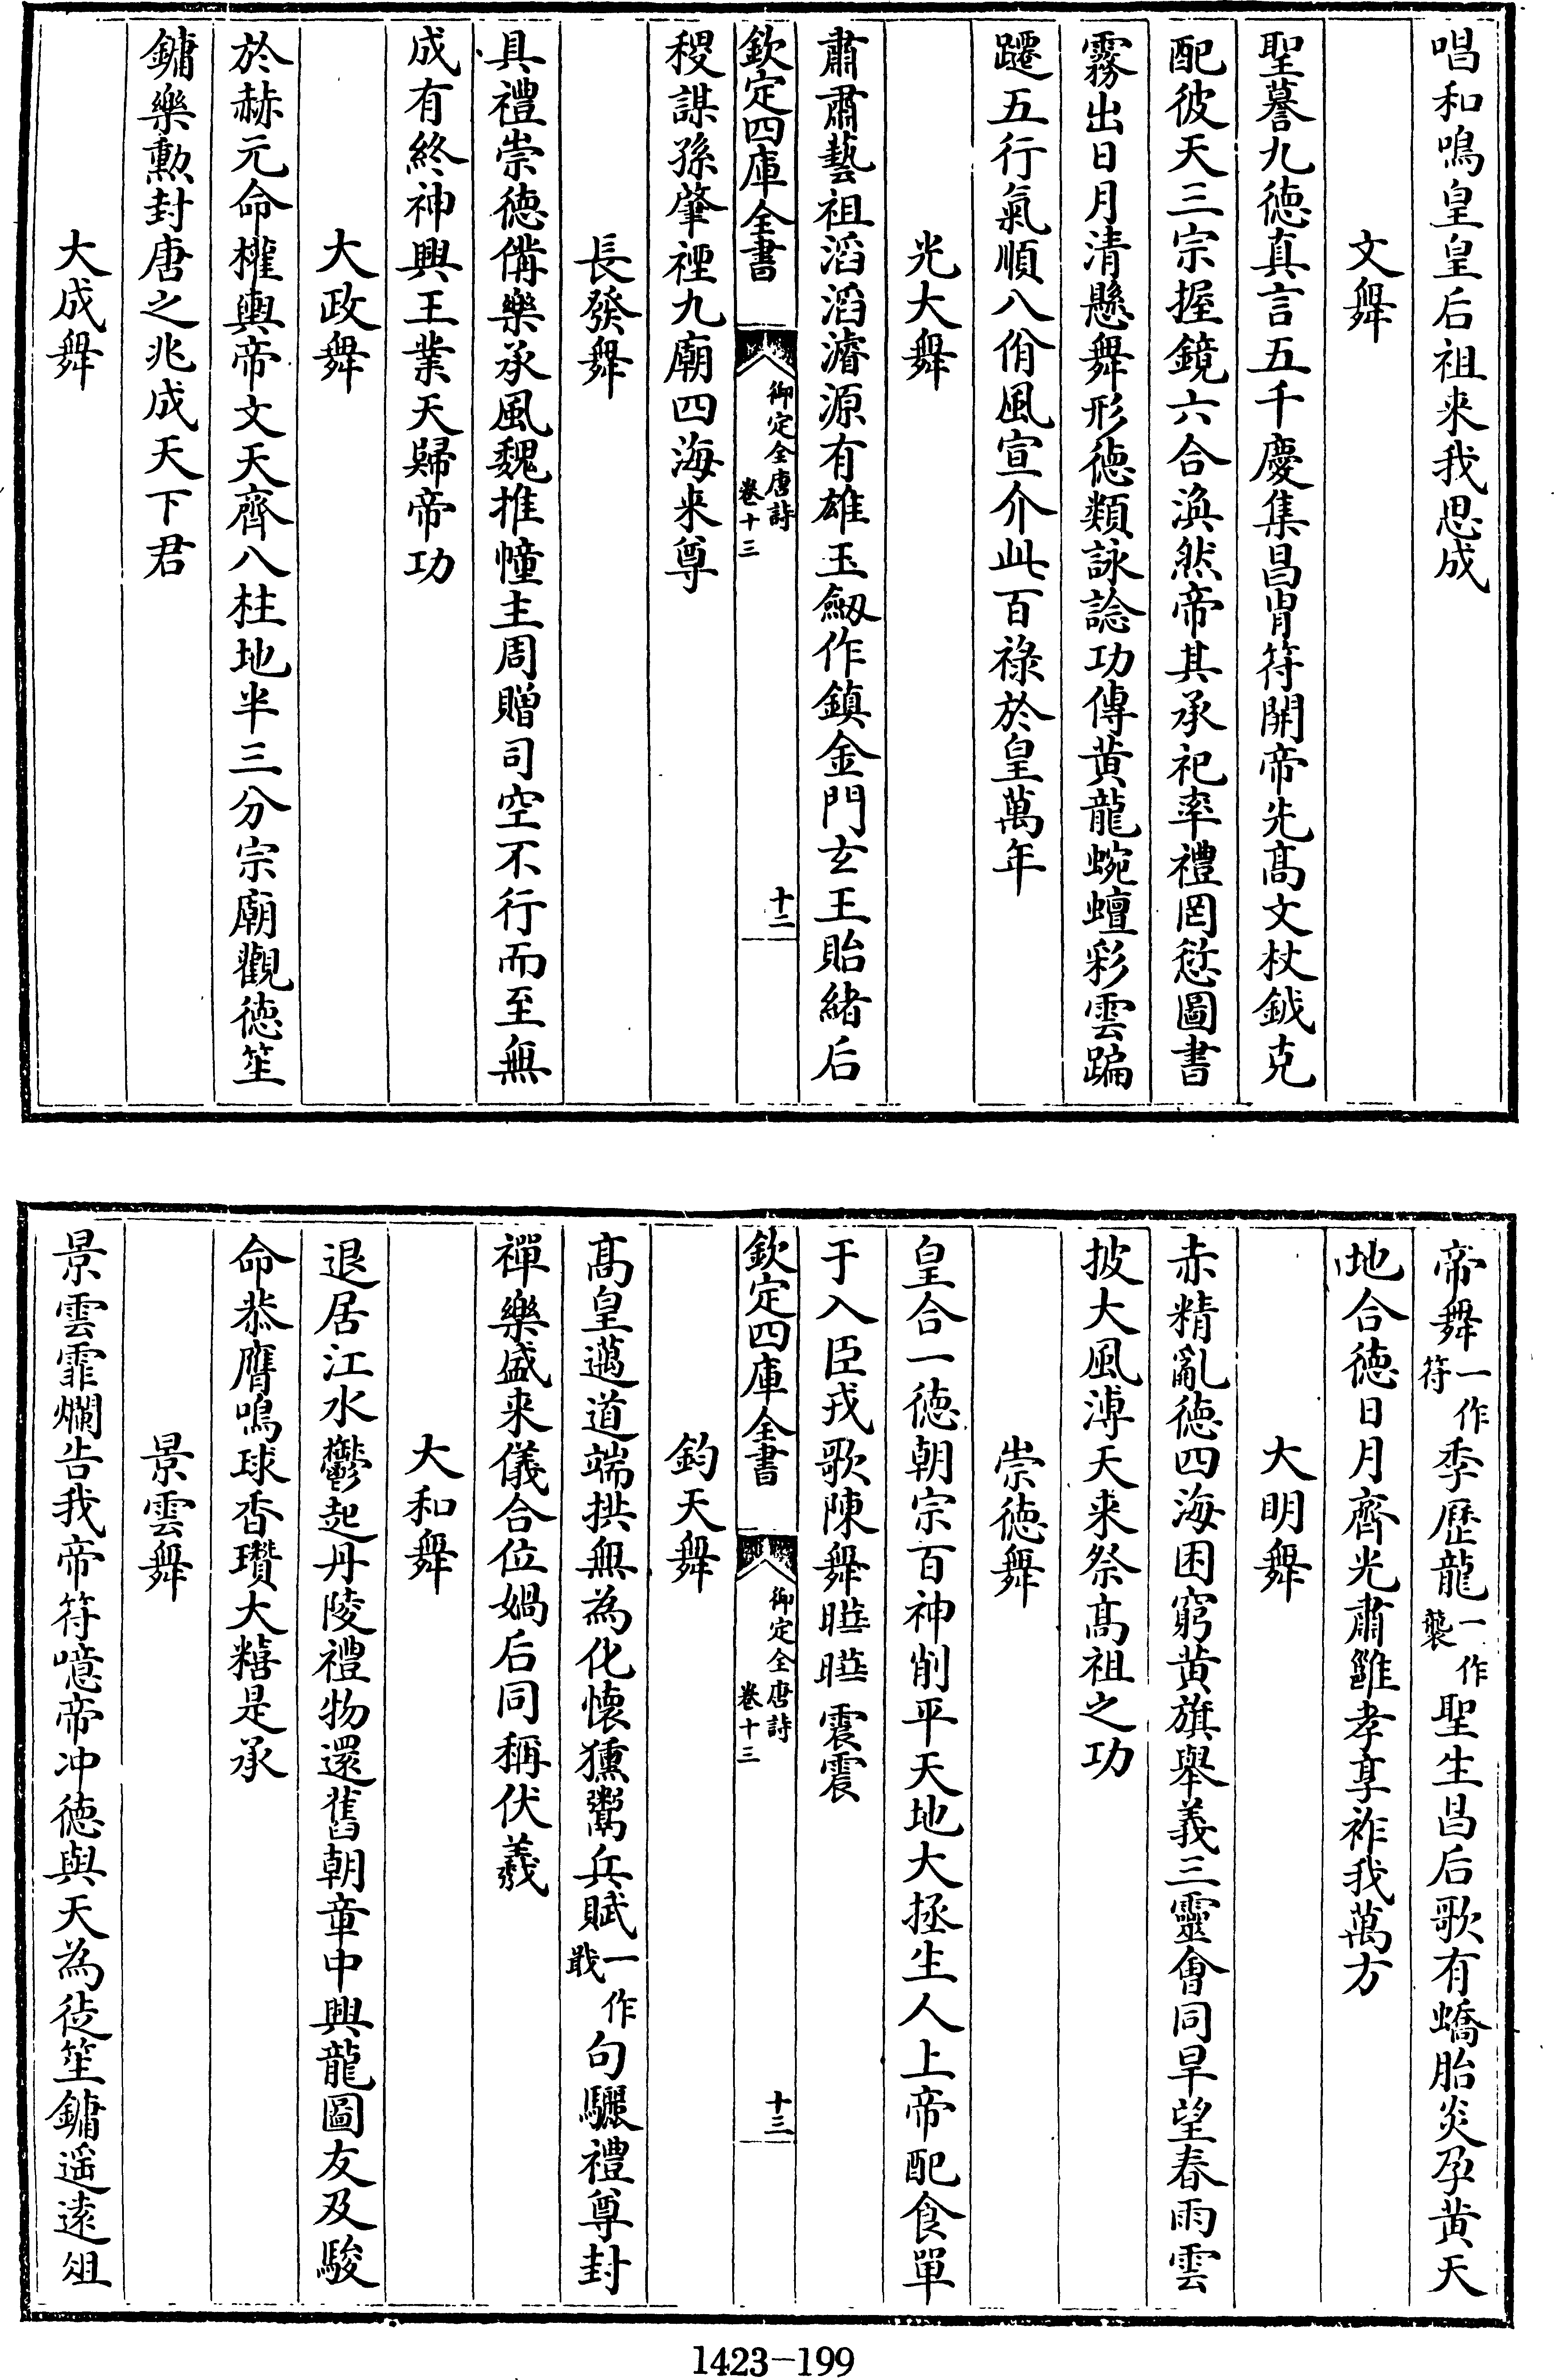 唱和鳴皇皇后祖来我思成
文舞
聖謩九徳真言五千慶集昌胄符開帝先髙文杖鉞克
配彼天三宗握鏡六合渙然帝其承祀率禮罔愆圖書
霧出日月清懸舞形徳類詠諗功傳黄龍蜿蟺彩雲蹁
躚五行氣順八佾風宣介此百祿於皇萬年
光大舞
肅肅藝祖滔滔濬源有雄玉劔作鎮金門玄王貽緒后
欽定四庫全書
御定全唐詩
卷十三
十二
稷謀孫肇禋九廟四海来尊
長發舞
具禮崇徳備樂承風魏推幢主周贈司空不行而至無
成有終神興王業天歸帝功
大政舞
於赫元命權輿帝文天齊八柱地半三分宗廟觀徳笙
鏞樂勲封唐之兆成天下君
大成舞
帝舞一作符季歴龍一作襲聖生昌后歌有蟜胎炎孕黄天
地合徳日月齊光肅雝孝享祚我萬方
大明舞
赤精亂徳四海困窮黄旗舉義三靈會同旱望春雨雲
披大風溥天来祭髙祖之功
崇徳舞
皇合一徳朝宗百神削平天地大拯生人上帝配食單
于入臣戎歌陳舞曄曄震震
欽定四庫全書
御定全唐詩
卷十三
十三
鈞天舞
髙皇邁道端拱無為化懷獯鬻兵賦一作戢句驪禮尊封
禪樂盛来儀合位媧后同稱伏羲
大和舞
退居江水鬱起丹陵禮物還舊朝章中興龍圖友及駿
命恭膺鳴球香瓚大糦是承
景雲舞
景雲霏爛告我帝符噫帝冲徳與天為徒笙鏞遥遠俎
1423-199